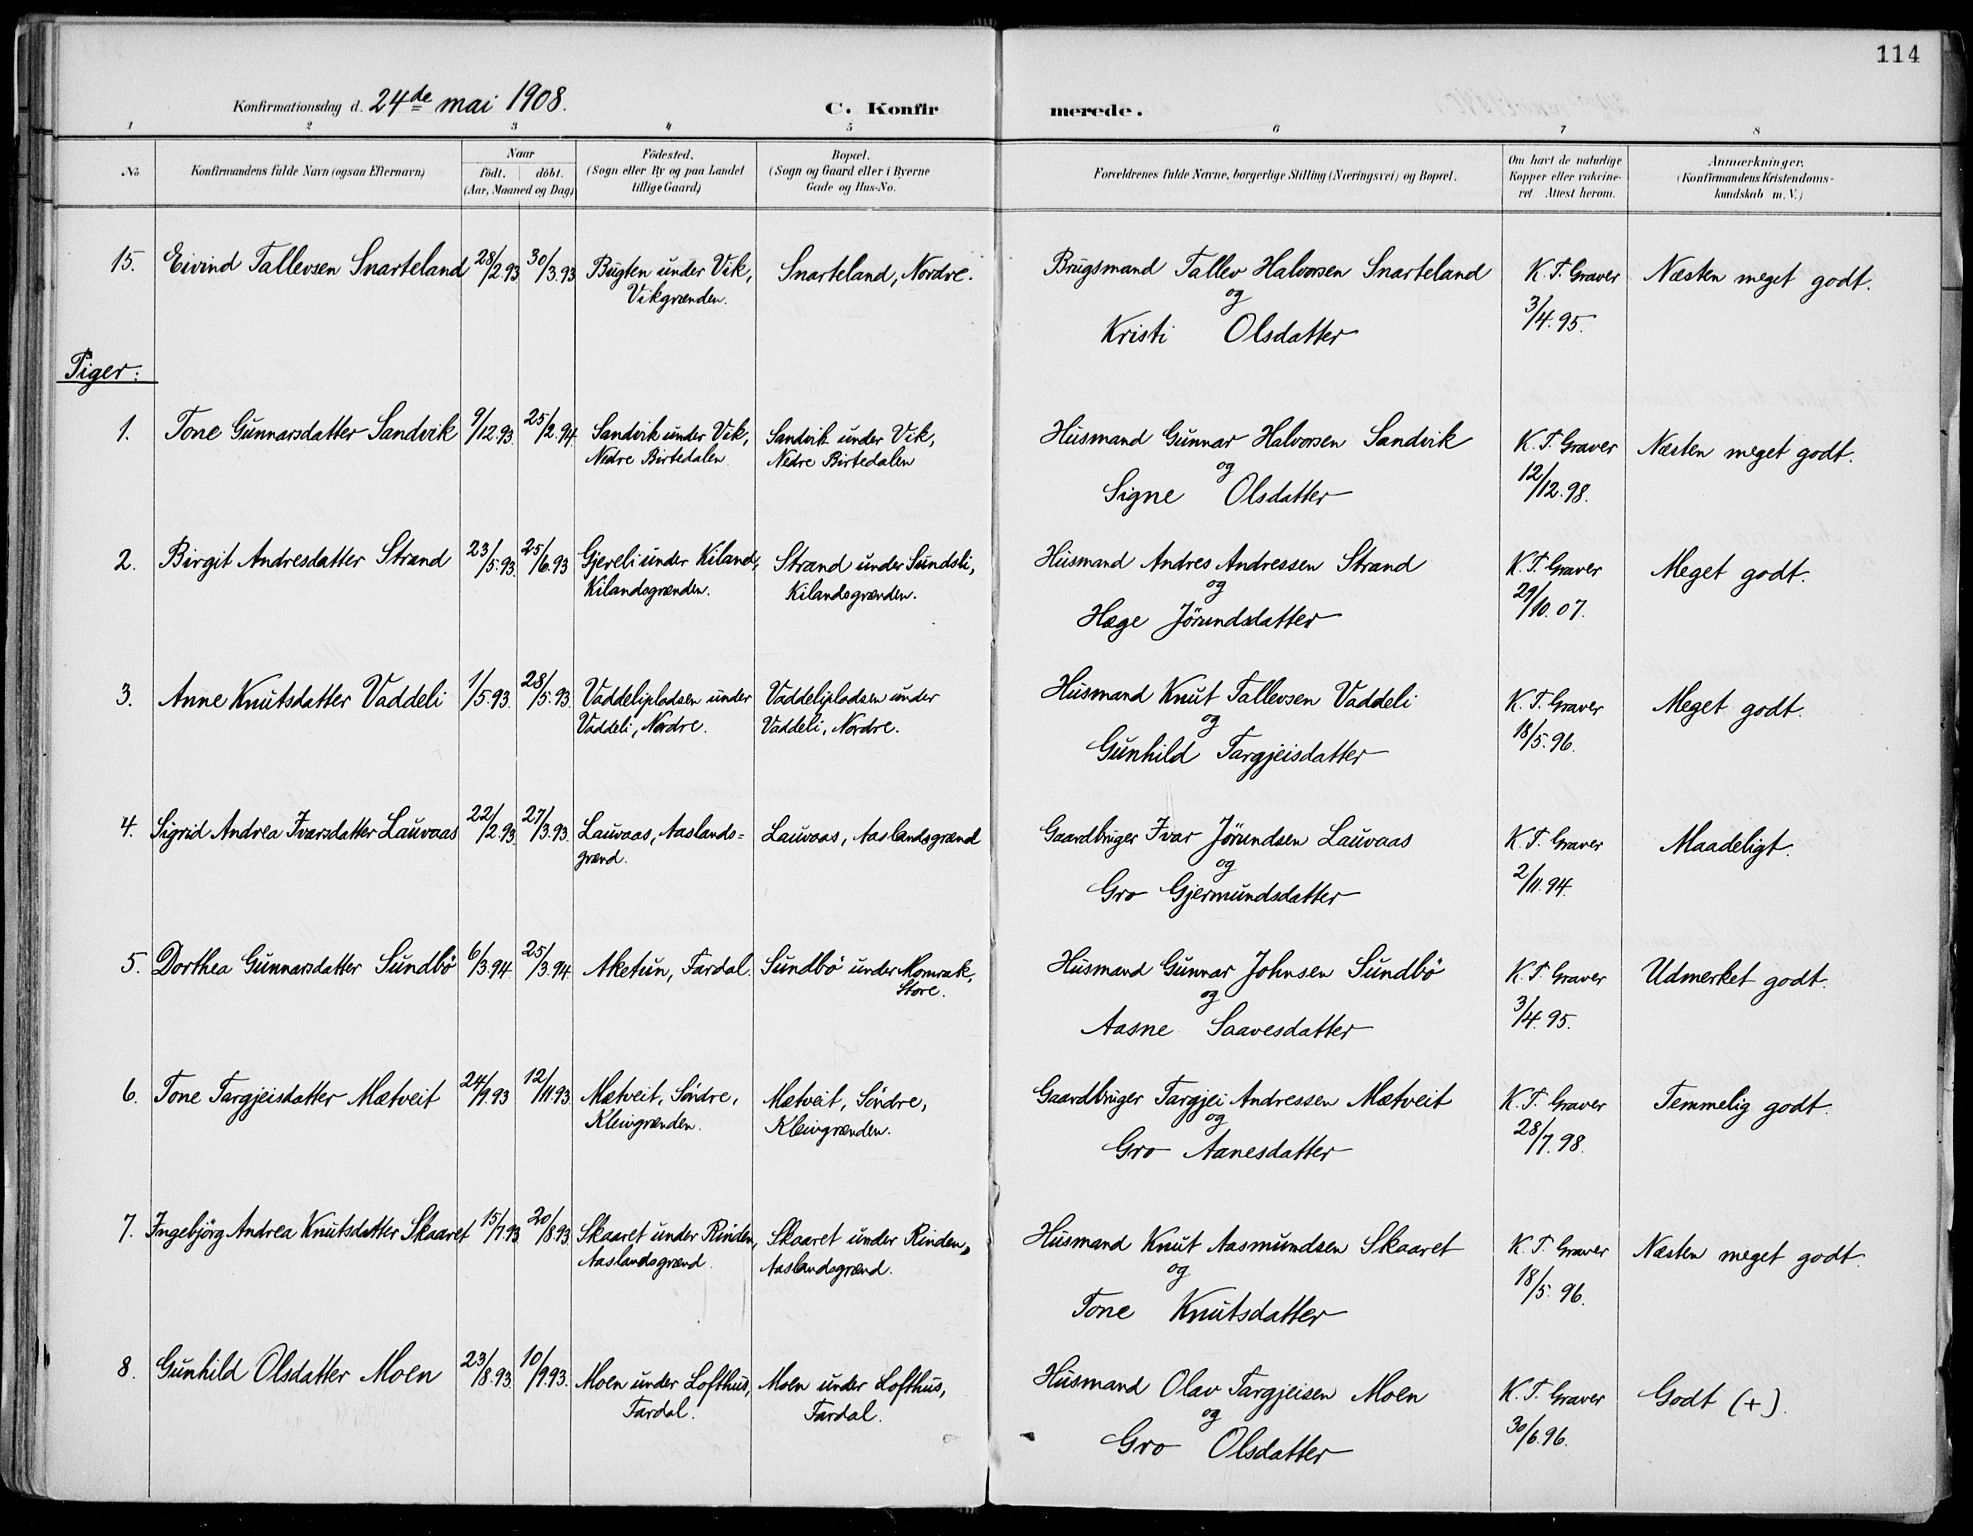 114
Konfirmationsdag d. 24de mai 1908.
C. Konfirmerede.
1 2 3 4 5 6 7 8
No
Konfirmandens fulde Navn (ogsaa Efternavn)
Naar
födt. döbt.
(Aar, Maaned og Dag)
Födested.
(Sogn eller By og paa Landet
tillige Gaard)
Bopæl.
(Sogn og Gaard eller i Byerne
Gade og Hus-No.
Forældrenes fulde Navne, borgerlige Stilling (Næringsvei) og Bopæl.
Om havt de naturlige
Kopper eller vakcine-
ret. Attest herom.
Anmærkninger.
(Konfirmandens Kristendoms-
kundskab m. V.)
15. Eivind Tallevsen Snarteland 28/2.93 30/3.93 Bugten under Vik, Snarteland, Nordre. Brugsmand Tallev Halvorsen Snarteland K. T. Graver Næsten meget godt.
Vikgrænden. og 3/4.95.
Kristi Olsdatter
Piger:
1. Tone Gunnarsdatter Sandvik 9/12.93. 25/2.94. Sandvik under Vik, Sandvik under Vik, Husmand Gunnar Halvorsen Sandvik K. T. Graver Næsten meget godt.
Nedre Birtedalen. Nedre Birtedalen og 12/12.98.
Signe Olsdatter
2. Birgit Andresdatter Strand 23/5.93. 25/6.93 Gjereli under Kiland, Strand under Sundsli, Husmand Andres Andressen Strand K. T. Graver Meget godt.
Kilandsgrænden. Kilandsgrænden. og 29/10.07.
Hæge Jörundsdatter
3. Anne Knutsdatter Vaddeli 1/5.93. 28/5.93. Vaddelipladsen under Vaddelipladsen under Husmand Knut Tallevsen Vaddeli K. T. Graver Meget godt.
Vaddeli, Nordre. Vaddeli, Nordre. og 18/5.96.
Gunhild Targjeisdatter
4. Sigrid Andrea Ivarsdatter Lauvaas 22/2.93. 27/3.93. Lauvaas, Aaslands= Lauvaas, Aaslandsgrænd Gaardbruger Ivar Jörundsen Lauvaas K. T. Graver Maadeligt.
grænd. og 2/11.94.
Gro Gjermundsdatter
5. Dorthea Gunnarsdatter Sundbö 6/3.94. 25/3.94. Aketun, Fardal. Sundbö under Momrak, Husmand Gunnar Johnsen Sundbö K. T. Graver Udmerket godt.
Store. og 3/4.95.
Aasne Saavesdatter
6. Tone Targjeisdatter Mætveit 24/9.93 12/11.93. Mætveit, Söndre, Mætveit, Söndre, Gaardbruger Targjei Andressen Mætveit K. T. Graver Temmelig godt.
Kleivgrænden. Kleivgrænden. og 28/7.98.
Gro Aanesdatter
7. Ingebjörg Andrea Knutsdatter Skaaret 15/7.93 20/8.93. Skaaret under Rinden, Skaaret under Rinden, Husmand Knut Aasmundsen Skaaret K. T. Graver Næsten meget godt.
Aaslandsgrænd. Aaslandsgrænd. og 18/5.96.
Tone Knutsdatter
8. Gunhild Olsdatter Moen 23/8.93. 10/9.93. Moen under Lofthus, Moen under Lofthus, Husmand Olav Targjeisen Moen K. T. Graver Godt (+).
Fardal. Fardal. og 30/6.96.
Gro Olsdatter